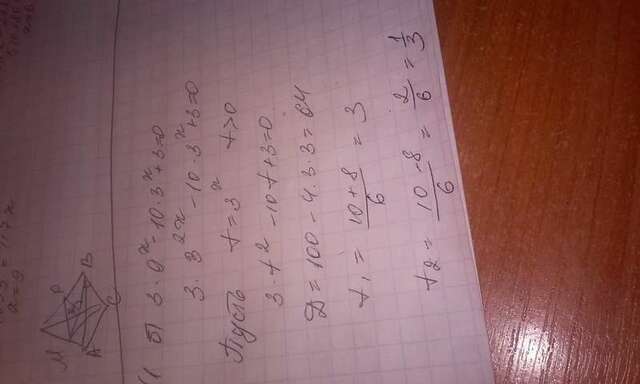 а = 9
М Р В А С
б) 3·9ˣ-10·3ˣ+3=0
3·3²ˣ-10·3ˣ+3=0
Пусть t=3ˣ t>0
3·t²-10t+3=0
D=100-4·3·3=64
t₁ = 10+8/6 = 3
t₂ = 10-8/6 = 2/6 = 1/3